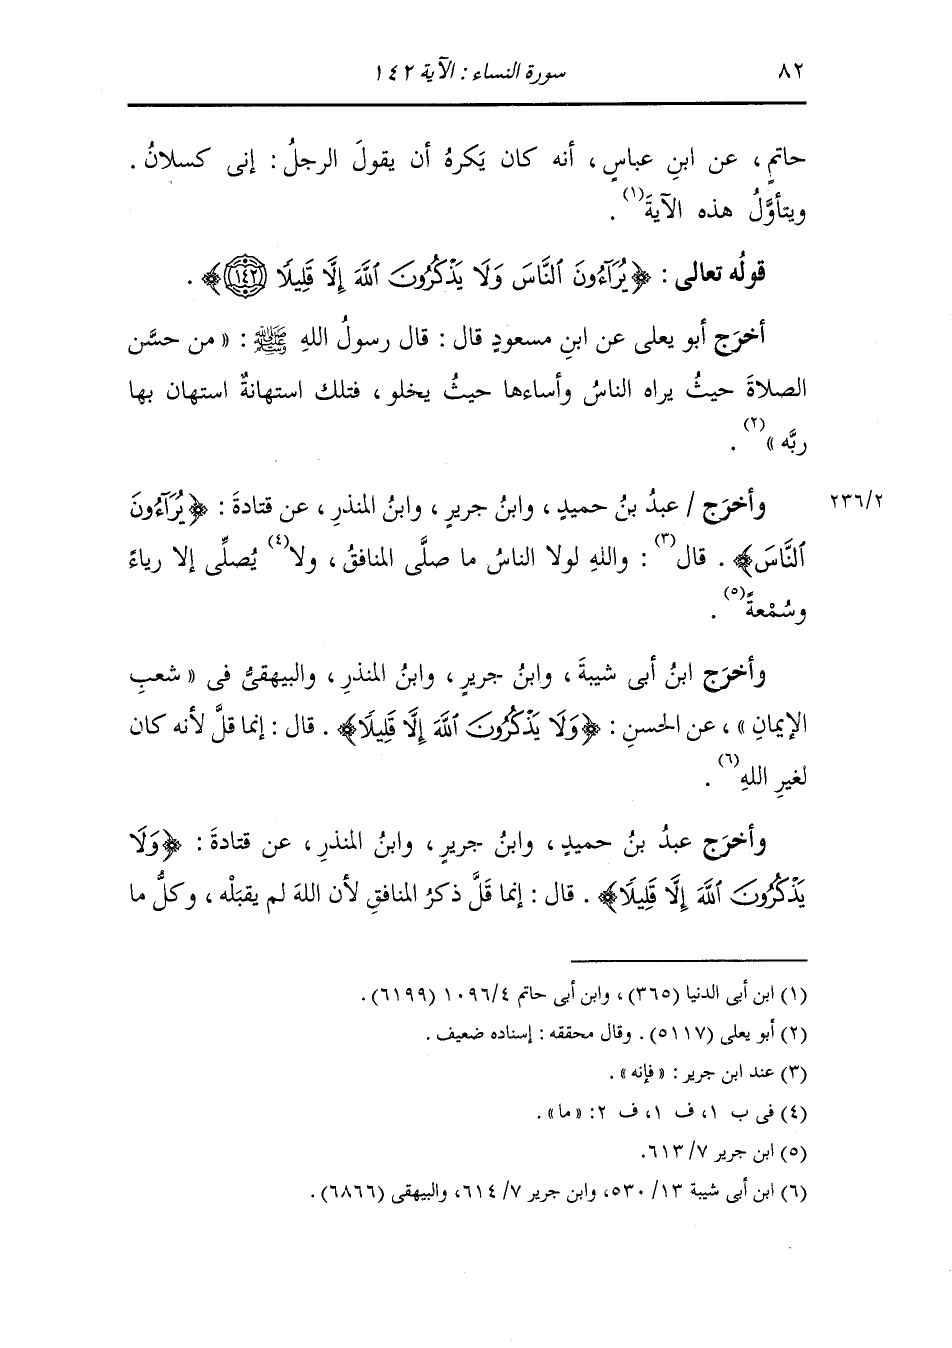 ٨٢
سورة النساء : الآية ١٤٢
حاتمٍ ، عن ابنِ عباسٍ ، أنه كان يَكرهُ أن يقولَ الرجلُ : إنى كسلانُ .
ويتأوَّلُ هذه الآيةَ(١) .
قولُه تعالى : ﴿يُرَآءُونَ ٱلنَّاسَ وَلَا يَذْكُرُونَ ٱللَّهَ إِلَّا قَلِيلًا ١٤٢﴾ .
أخرَج أبو يعلى عن ابنِ مسعودٍ قال : قال رسولُ اللهِ ﷺ : « من حسَّن
الصلاةَ حيثُ يراه الناسُ وأساءها حيثُ يخلو ، فتلك استهانةٌ استهان بها
ربَّه »(٢) .
وأخرَج / عبدُ بنُ حميدٍ ، وابنُ جريرٍ ، وابنُ المنذرِ ، عن قتادةَ : ﴿يُرَآءُونَ
٢٣٦/٢
ٱلنَّاسَ﴾ . قال(٣) : واللهِ لولا الناسُ ما صلَّى المنافقُ ، ولا(٤) يُصلِّى إلا رياءً
وسُمْعةً(٥) .
وأخرَج ابنُ أبى شيبةَ ، وابنُ جريرٍ ، وابنُ المنذرِ ، والبيهقىُّ فى « شعبِ
الإيمانِ » ، عن الحسنِ : ﴿وَلَا يَذْكُرُونَ ٱللَّهَ إِلَّا قَلِيلًا﴾ . قال : إنما قلَّ لأنه كان
لغيرِ اللهِ(٦) .
وأخرَج عبدُ بنُ حميدٍ ، وابنُ جريرٍ ، وابنُ المنذرِ ، عن قتادةَ : ﴿وَلَا
يَذْكُرُونَ ٱللَّهَ إِلَّا قَلِيلًا﴾ . قال : إنما قَلَّ ذكرُ المنافقِ لأن اللهَ لم يقبَلْه ، وكلُّ ما
(١) ابن أبى الدنيا (٣٦٥) ، وابن أبى حاتم ١٠٩٦/٤ (٦١٩٩) .
(٢) أبو يعلى (٥١١٧) . وقال محققه : إسناده ضعيف .
(٣) عند ابن جرير : « فإنه » .
(٤) فى ب ١، ف ١، ف ٢: «ما» .
(٥) ابن جرير ٦١٣/٧.
(٦) ابن أبى شيبة ٥٣٠/١٣، وابن جرير ٦١٤/٧، والبيهقى (٦٨٦٦) .